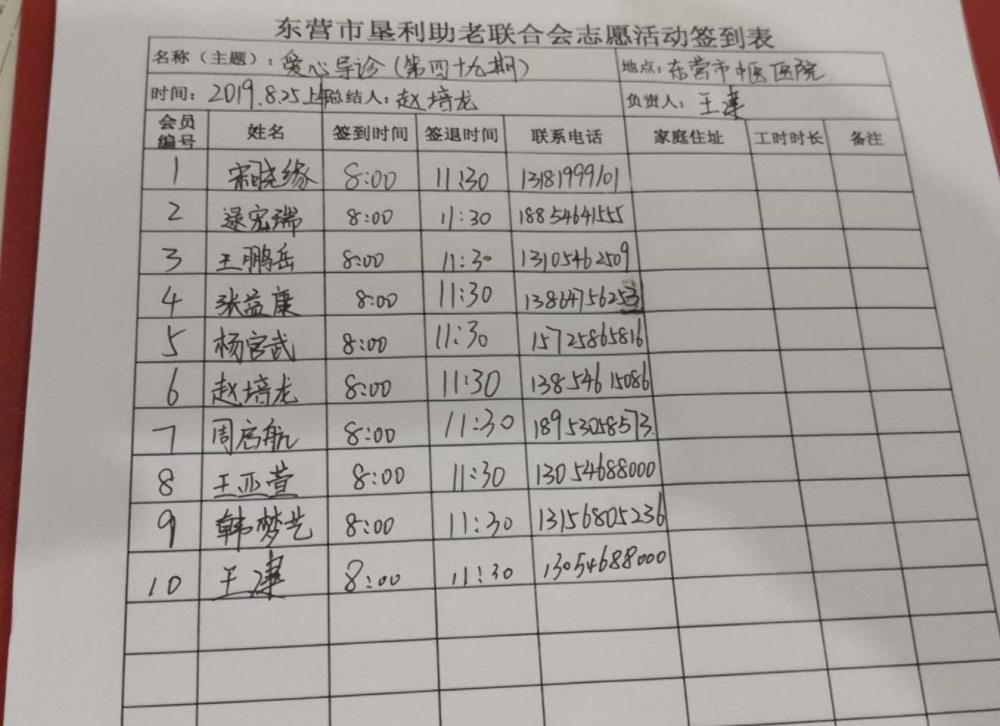 东营市垦利助老联合会志愿活动签到表
名称（主题）：爱心导诊（第四十九期） 地点：东营市中医医院
时间：2019.8.25上午 总结人：赵培龙 负责人：王建
会员编号 姓名 签到时间 签退时间 联系电话 家庭住址 工时时长 备注
1 宋晓缘 8:00 11:30 13181999101
2 逯宏瑞 8:00 11:30 18854641555
3 王鹏岳 8:00 11:30 13105462509
4 张益康 8:00 11:30 13864756253
5 杨官武 8:00 11:30 15725865816
6 赵培龙 8:00 11:30 13854615086
7 周启航 8:00 11:30 18953058573
8 王亚萱 8:00 11:30 13054688000
9 韩梦艺 8:00 11:30 13156805236
10 王建 8:00 11:30 13054688000